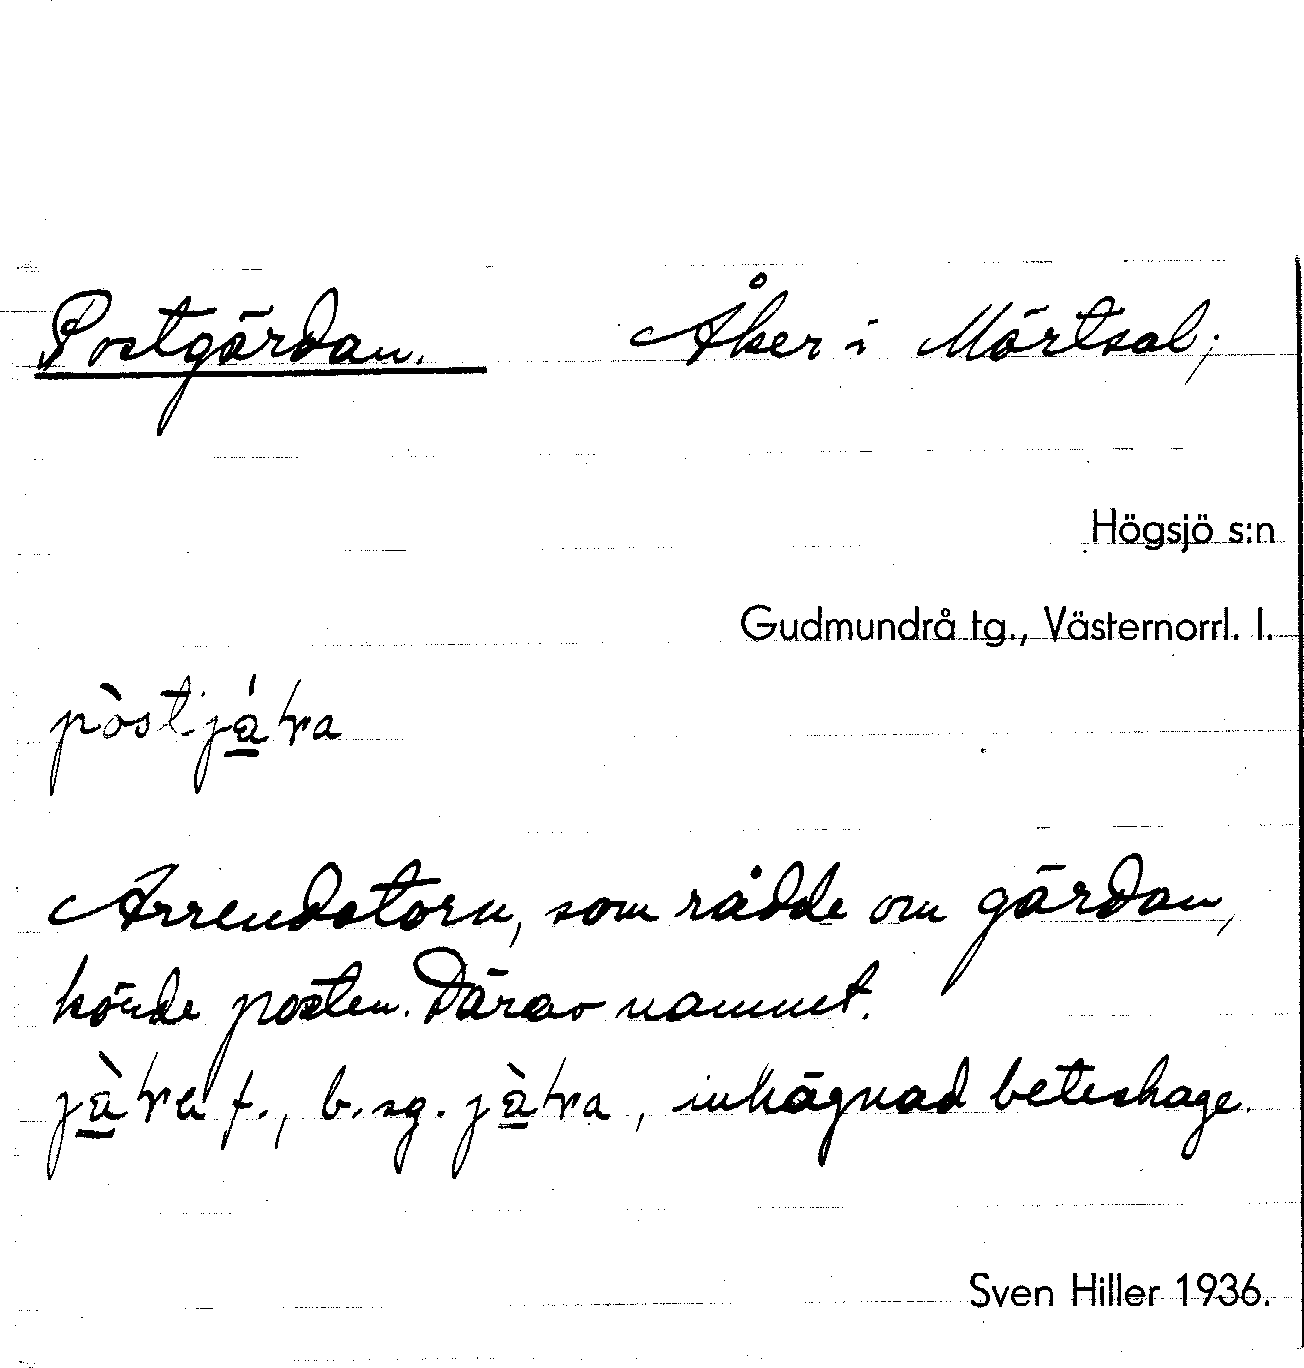 Postgärdan. Åker i Mörtsal;
Högsjö s:n
Gudmundrå tg., Västernorrl. l.
Arrendatorn, som rådde om gärdan,
körde posten. Därav namnet.
f., b. sg. , inhägnad beteshage.
Sven Hiller 1936.